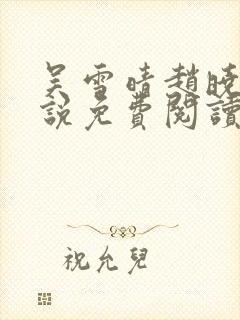 吴雪晴趙晓
說免費閱讀
祝允兒